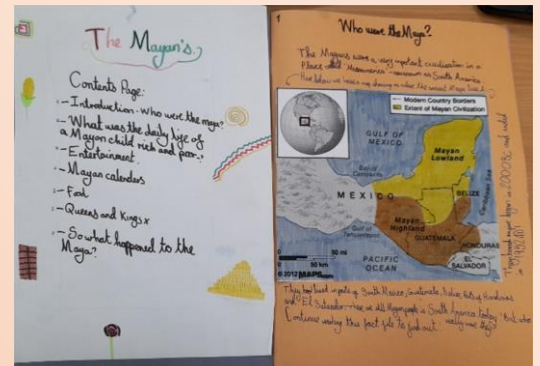 The Mayan's.
Contents Page:
- Introduction - Who were the maya?
- What was the daily life of
a Mayan child rich and poor?
- Entertainment
- Mayan calenders
- Food
- Queens and Kings x
- So what happened to the
Maya?
1
Who were the Maya?
The Mayans were a very important civilisation in a
Place called 'Mesoamerica' - now known as South America
Modern Country Borders
Extent of Mayan Civilization
GULF OF
MEXICO
Mayan
Lowland
Bay of
Campeche
MEXICO
BELIZE
Caribbean Sea
Mayan
Highland
Gulf of
Tehuantepec
GUATEMALA
HONDURAS
EL
SALVADOR
PACIFIC
OCEAN
50 mi
50 km
© 2012 MAPS
They had lived in parts of South Mexico, Guatemala, Belize, Parts of Honduras
and El Salvador. There are still Mayan people in South America today! But who
Continue reading this fact file to find out! really were they?